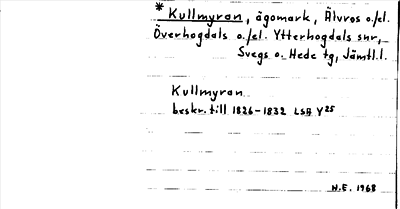 * Kullmyran, ägomark, Älvros o./el.
Överhogdals o./el. Ytterhogdals snr,
Svegs o. Hede tg, Jämtl.l.
Kullmyran
beskr. till 1826-1832 LSA Y25
N.E. 1968